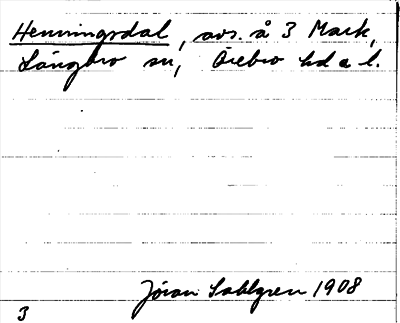 Henningsdal, avs. å 3 Mark,
Längbro sn, Örebro hd a l.
Jöran Sahlgren 1908
3